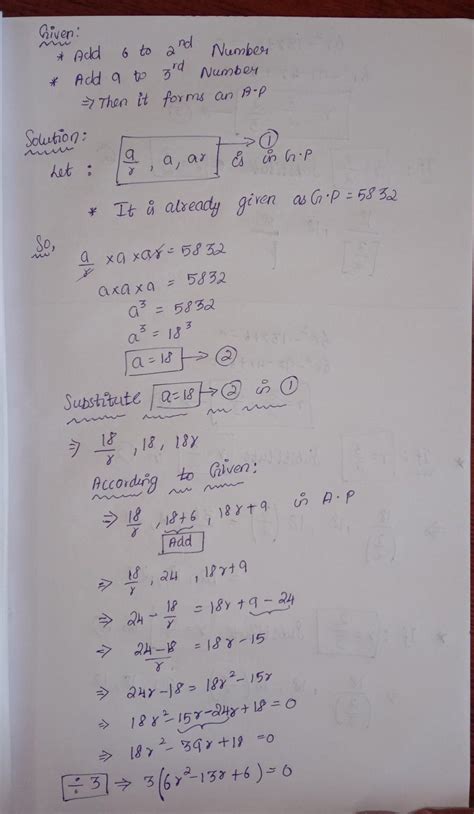 Given:
* Add 6 to 2nd Number
* Add 9 to 3rd Number
⇒ Then it forms an A.P
Solution:
Let : a/r, a, ar → ① is in G.P
* It is already given as G.P = 5832
So,
a/r × a × ar = 5832
a×a×a = 5832
a³ = 5832
a³ = 18³
a = 18 → ②
Substitute a=18 → ② in ①
⇒ 18/r, 18, 18r
According to Given:
⇒ 18/r, 18+6, 18r+9 in A.P
Add
⇒ 18/r, 24, 18r+9
⇒ 24 - 18/r = 18r+9-24
⇒ 24-18/r = 18r-15
⇒ 24r-18 = 18r²-15r
⇒ 18r²-15r-24r+18 = 0
⇒ 18r²-39r+18 = 0
÷3 ⇒ 3(6r²-13r+6) = 0